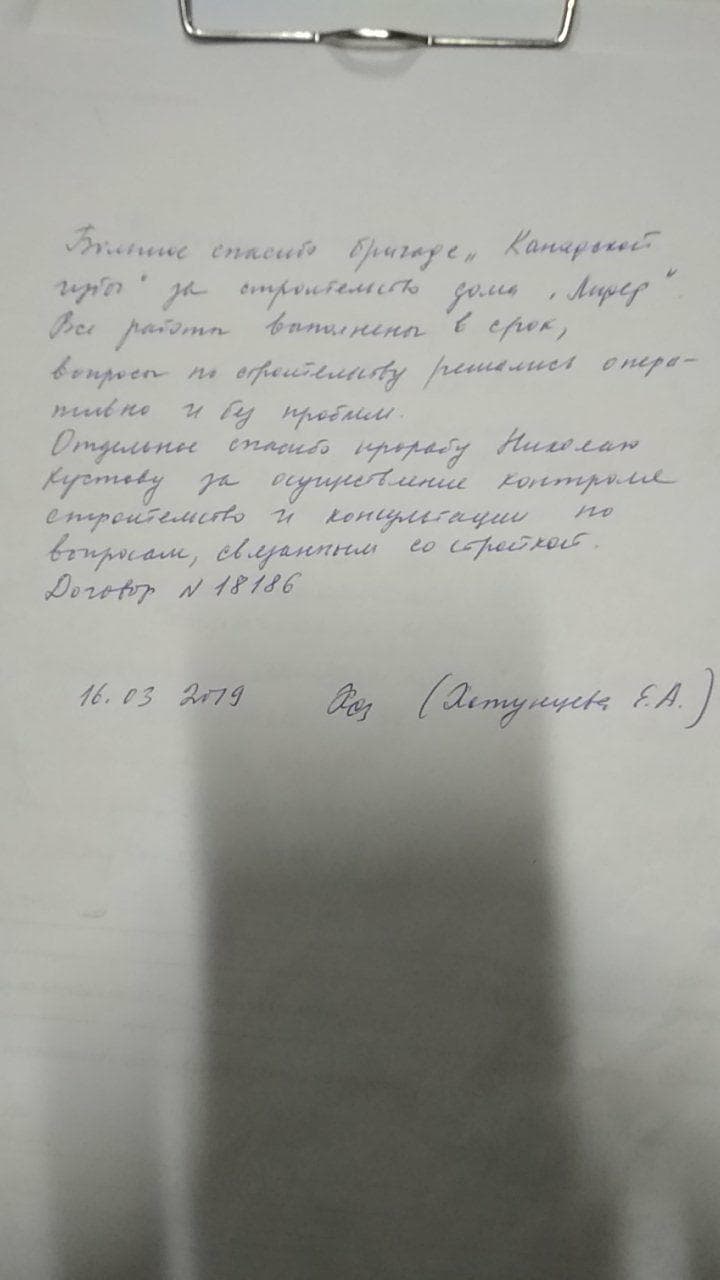 Большое спасибо бригаде „Канадской
избы" за строительство дома „Лидер".
Все работы выполнены в срок,
вопросы по строительству решались опера-
тивно и без проблем.
Отдельное спасибо прорабу Николаю
Кустову за осуществление контроля
строительство и консультации по
вопросам, связанным со стройкой.
Договор N 18186
16.03 2019 (Хотунцева Е.А.)